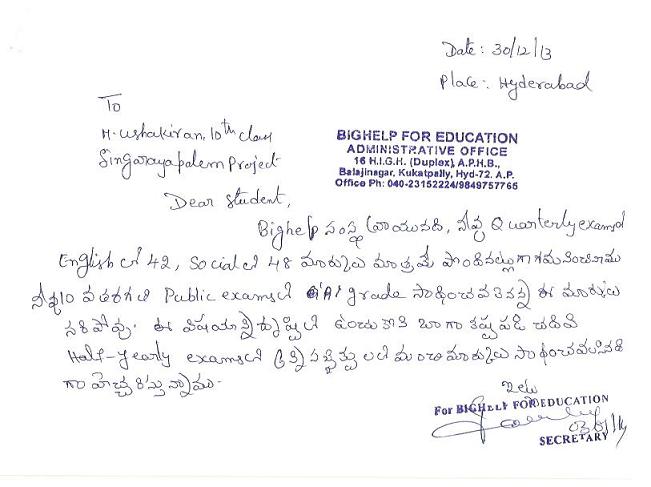 Date: 30/12/13
Place: Hyderabad
To
H. Ushakiran, 10th class
Singarayapalem Project
BIGHELP FOR EDUCATION
ADMINISTRATIVE OFFICE
16 H.I.G.H. (Duplex), A.P.H.B.,
Balajinagar, Kukatpally, Hyd-72. A.P.
Office Ph: 040-23152224/9849757765
Dear Student,
Bighelp సంస్థ వ్రాయునది, నీవు Quarterly examsలో
English లో 42, Social లో 48 మార్కులు మాత్రమే పొందినట్లుగా గమనించినాము
నీవు 10 వ తరగతి Public examsలో 'A' grade సాధించవలెనన్న ఈ మార్కులు
సరిపోవు. ఈ విషయాన్ని దృష్టిలో ఉంచుకొని బాగా కష్టపడి చదివి
Half-yearly examsలో అన్ని సబ్జెక్టులలో మంచి మార్కులు సాధించవలసినది
గా హెచ్చరిస్తున్నాము.
ఇట్లు
For BIGHELP FOR EDUCATION
SECRETARY